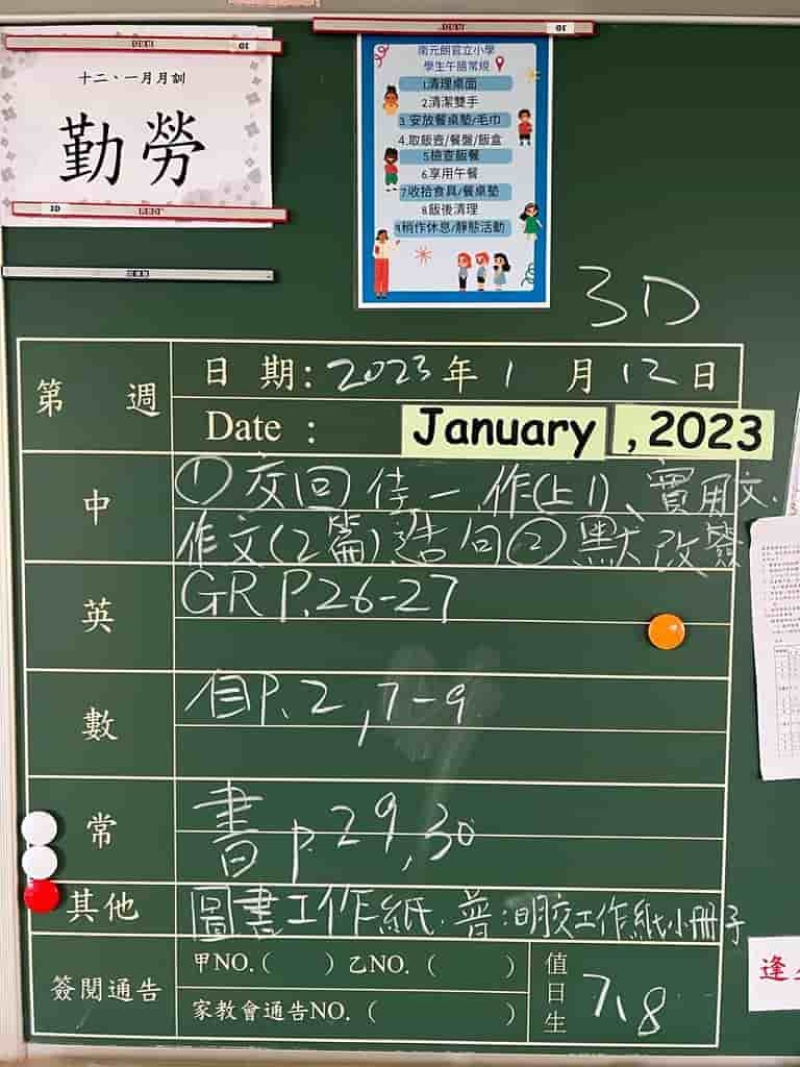 十二、一月月訓
勤勞
南元朗官立小學
學生午膳常規
1.清理桌面
2.清潔雙手
3.安放餐桌墊/毛巾
4.取飯壺/餐盤/飯盒
5.檢查飯餐
6.享用午餐
7.收拾食具/餐桌墊
8.飯後清理
9.稍作休息/靜態活動
3D
第 週
日 期: 2023年 1 月 12日
Date : January , 2023
中
①交回佳一、作(上1)、實用文、
作文(2篇)造句②默改簽
英
GR P.26-27
數
自P.2,7-9
常
書 p.29,30
其他
圖書工作紙.普:明交工作紙小冊子
簽閱通告
甲NO.( ) 乙NO. ( )
家教會通告NO. ( )
值日生
7、8
逢